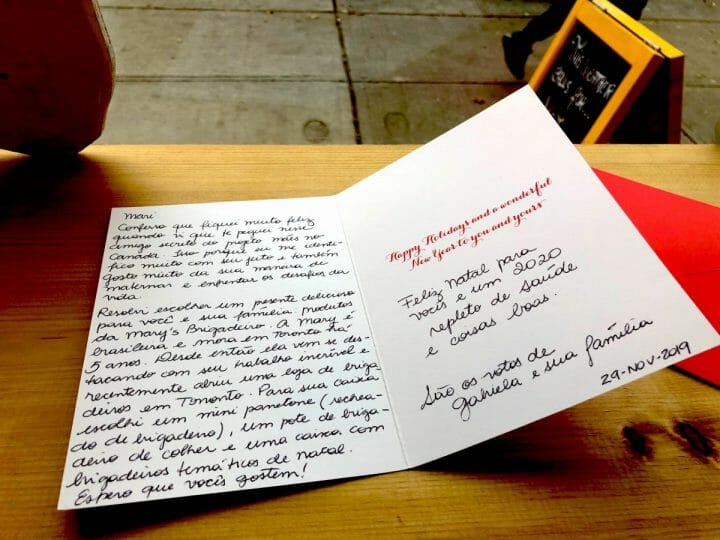 Mari
Confesso que fiquei muito feliz
quando vi que te peguei nesse
amigo secreto do projeto mães no
Canadá. Isso porque eu me identi-
fico muito com seu jeito e também
gosto muito da sua maneira de
maternar e enfrentar os desafios da
vida.
Resolvi escolher um presente delicioso
para você e sua família: produtos
da Mary's Brigadeiro. A Mary é
brasileira e mora em Toronto há
5 anos. Desde então ela vem se des-
tacando com seu trabalho incrível e
recentemente abriu uma loja de briga
deiros em Toronto. Para sua caixa
escolhi um mini panetone (rechea-
do de brigadeiro), um pote de briga-
deiro de colher e uma caixa com
brigadeiros temáticos de natal.
Espero que vocês gostem!
Happy Holidays and a wonderful
New Year to you and yours
Feliz natal para
vocês e um 2020
repleto de saúde
e coisas boas.
São os votos de
Gabriela e sua família
29-NOV-2019